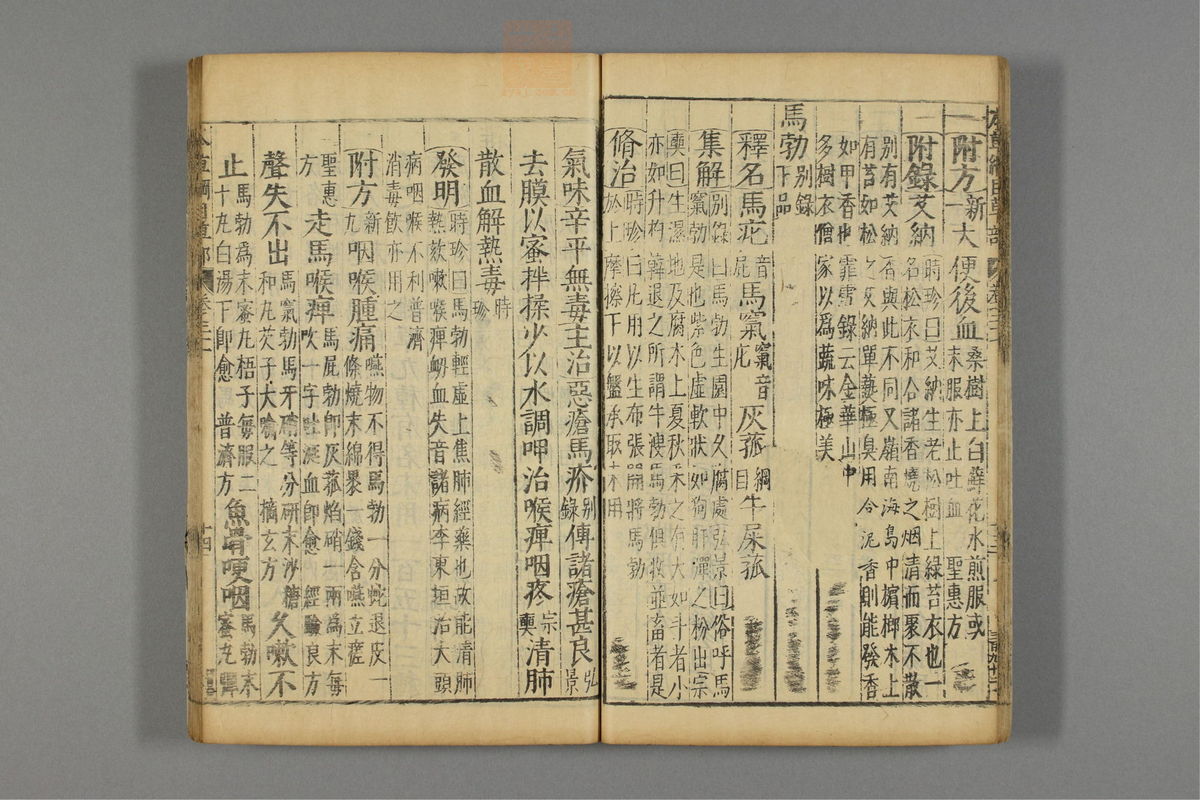 附方新一大便後血桑樹上白蘚花水煎服或
末服亦止吐血 聖惠方
附錄艾納時珍曰艾納生老松樹上綠苔衣也一
名松衣和合諸香燒之烟清而聚不散
別有艾納香與此不同又嶺南海島中檳榔木上
有苔如松之艾納單爇極臭用合泥香則能發香
如甲香也霏雪錄云金華山中
多樹衣僧家以爲蔬味極美
馬勃別錄下品
釋名馬疕音屁馬窠窠音庀灰菰綱目牛屎菰
集解別錄曰馬勃生園中久腐處弘景曰俗呼馬
窠勃是也紫色虛軟狀如狗肝彈之粉出宗
奭曰生濕地及腐木上夏秋采之有大如斗者小
亦如升杓韓退之所謂牛溲馬勃俱收並畜者是
脩治時珍曰凡用以生布張開將馬勃
於上摩擦下以盤承取末用
氣味辛平無毒主治惡瘡馬疥別錄傅諸瘡甚良弘景
去膜以蜜拌揉少以水調呷治喉痺咽疼宗奭清肺
散血解熱毒時珍
發明時珍曰馬勃輕虛上焦肺經藥也故能清肺
熱欬嗽喉痺衂血失音諸病李東垣治大頭
病咽喉不利普濟
消毒飲亦用之
附方新九咽喉腫痛嚥物不得馬勃一分蛇退皮一
條燒末綿褁一錢含嚥立瘥
聖惠方走馬喉痺馬屁勃即灰菰焰硝一兩爲末每
吹一字吐涎血即愈 經驗良方
聲失不出馬窠勃馬牙硝等分研末沙糖
和丸芡子大噙之 摘玄方久嗽不
止馬勃爲末蜜丸梧子每服二
十丸白湯下即愈 普濟方魚骨哽咽馬勃末
蜜丸彈